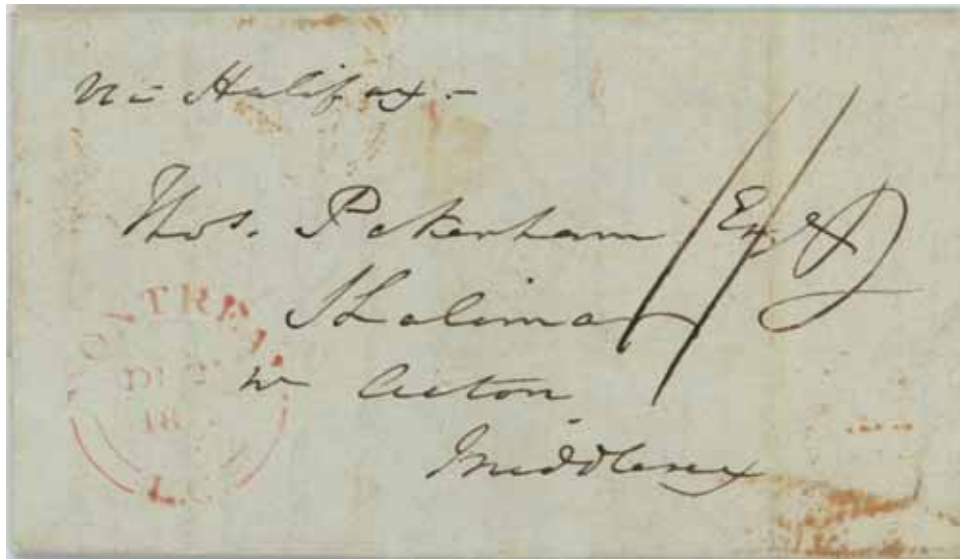 via Halifax –
Thos. Pakenham Esqr
Shalimar
nr Acton
Middlesex
MONTREAL
L.C.